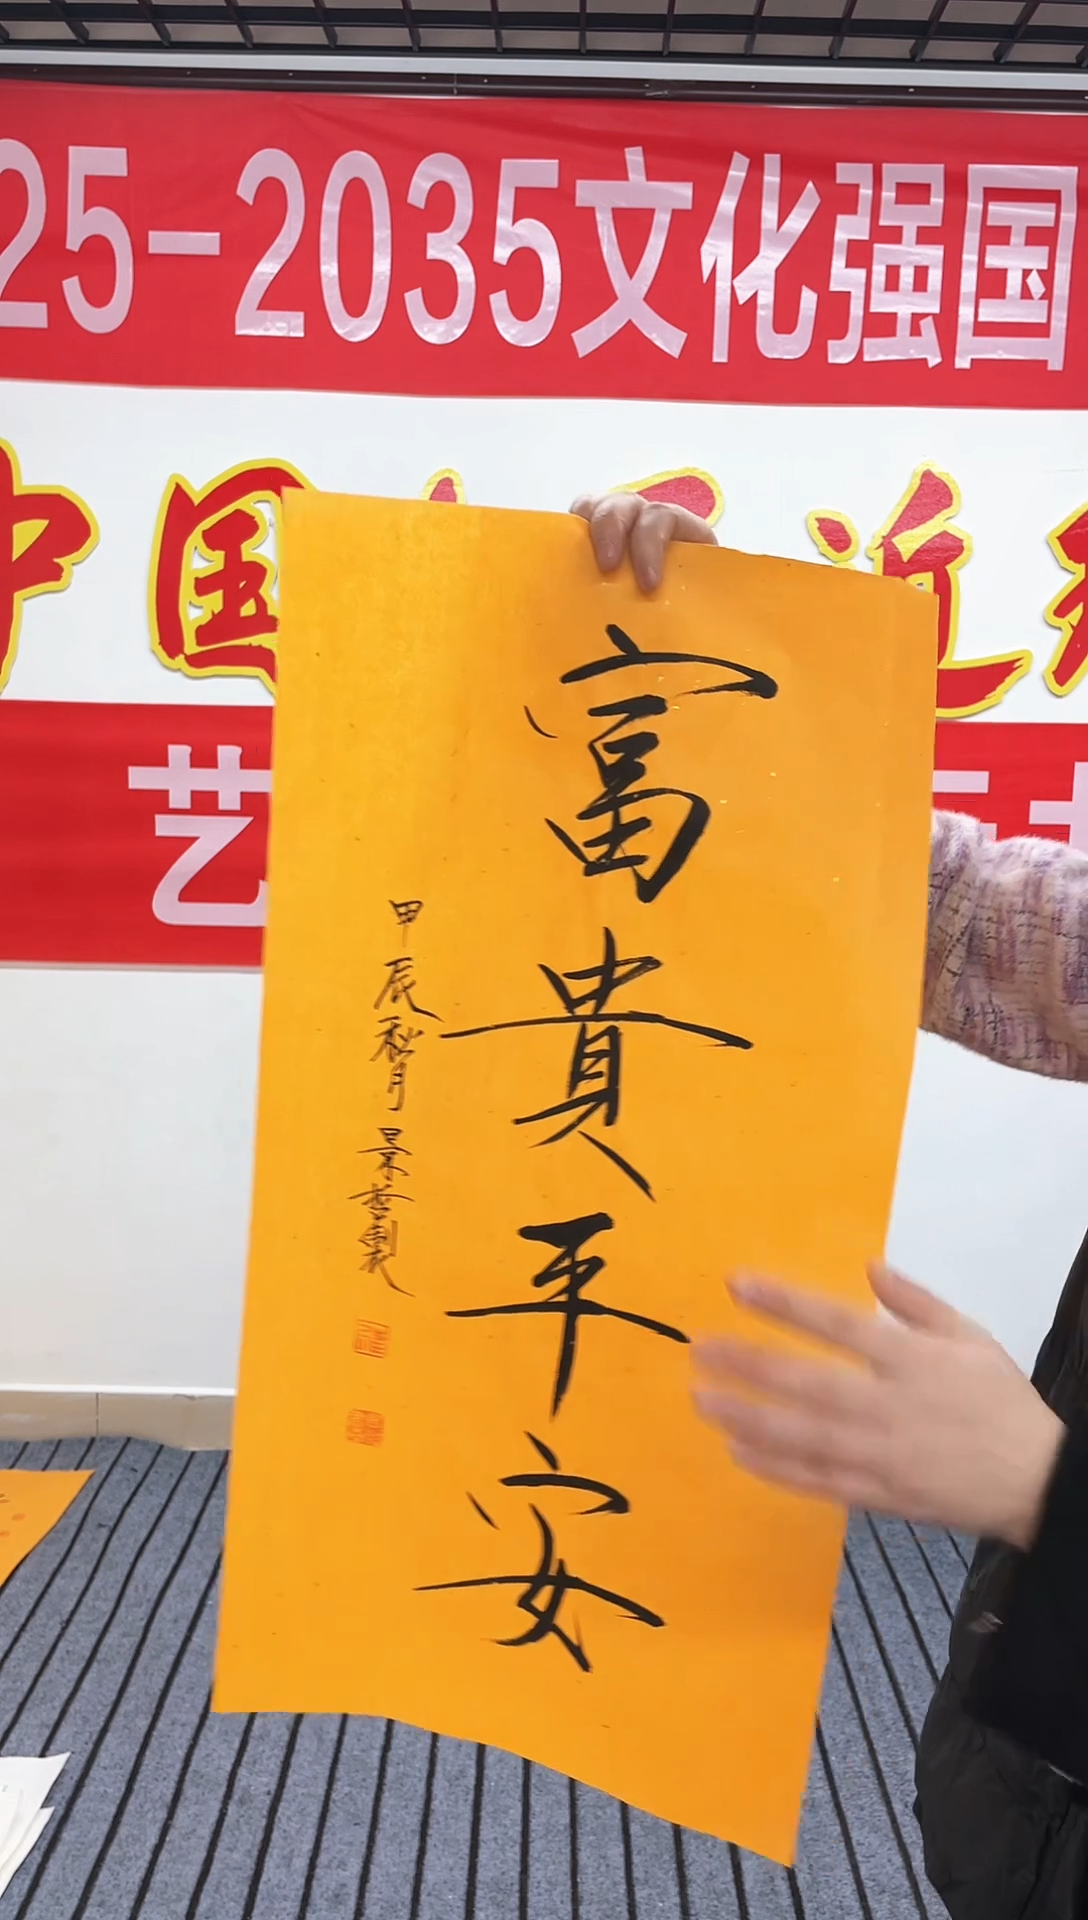 25-2035文化强国
中国
近
艺
富貴平安
甲辰秋月景哲製